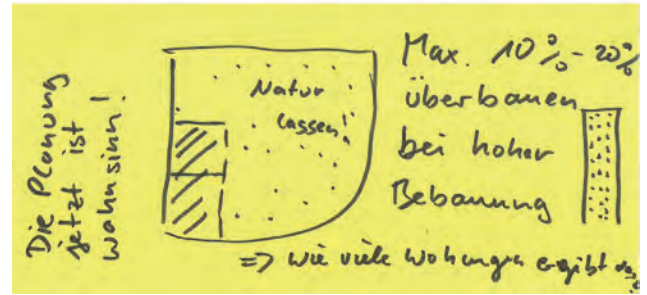 Die Planung
jetzt ist
wahnsinn!
Natur
lassen!
Max. 10%-20%
überbauen
bei hoher
Bebauung
=> wie viele Wohungen ergibt das?